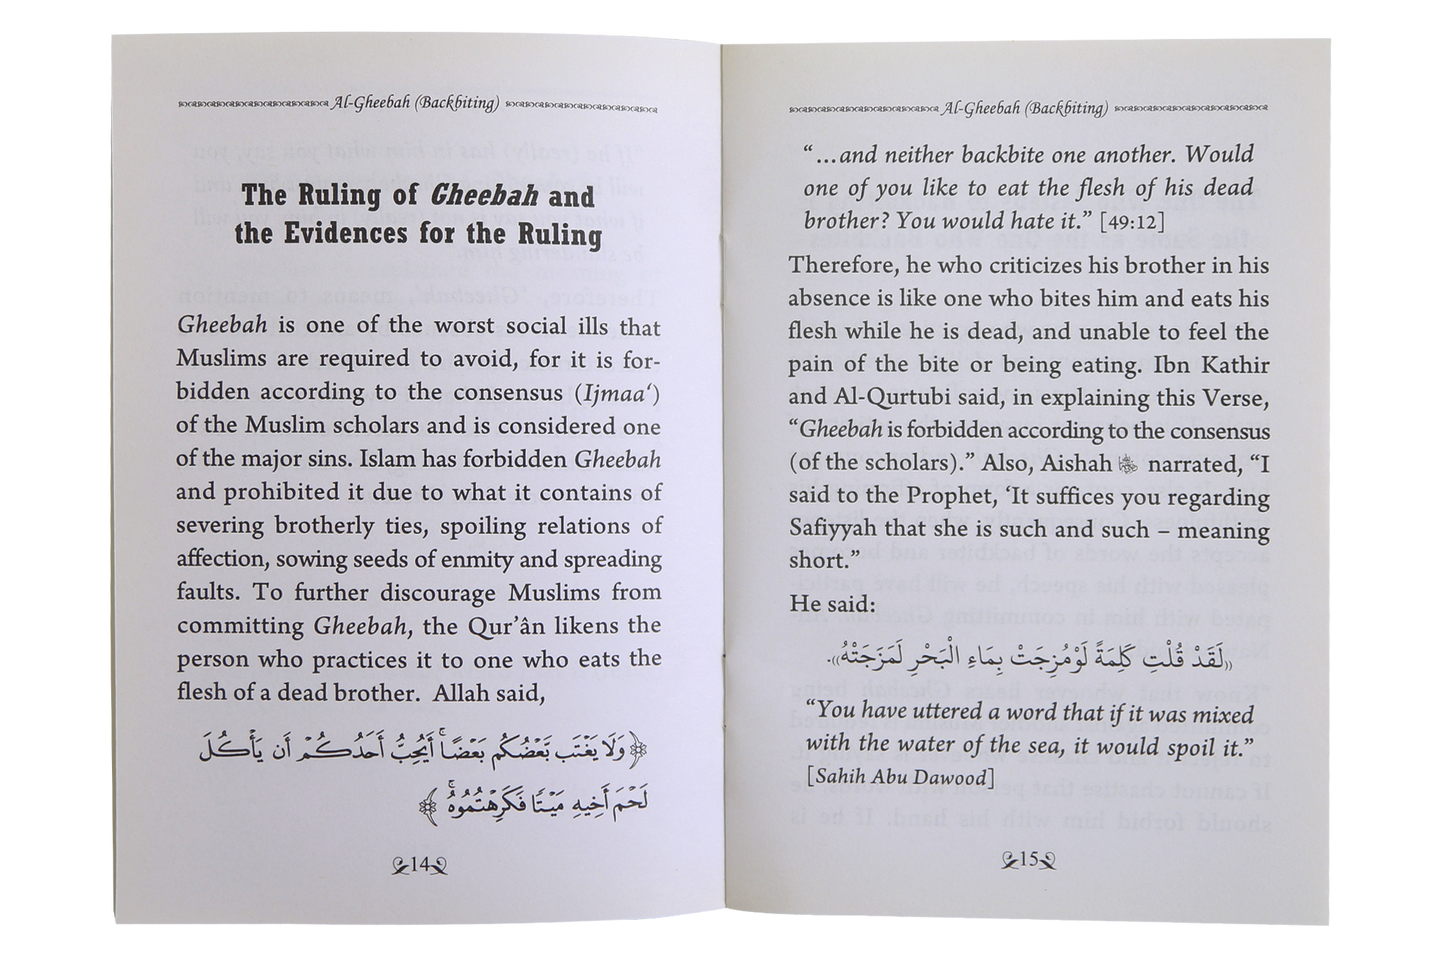 Al-Gheebah (Backbiting)
The Ruling of Gheebah and
the Evidences for the Ruling
Gheebah is one of the worst social ills that
Muslims are required to avoid, for it is for-
bidden according to the consensus (Ijmaa‘)
of the Muslim scholars and is considered one
of the major sins. Islam has forbidden Gheebah
and prohibited it due to what it contains of
severing brotherly ties, spoiling relations of
affection, sowing seeds of enmity and spreading
faults. To further discourage Muslims from
committing Gheebah, the Qur’ân likens the
person who practices it to one who eats the
flesh of a dead brother. Allah said,
﴿وَلَا يَغْتَب بَّعْضُكُم بَعْضًا ۚ أَيُحِبُّ أَحَدُكُمْ أَن يَأْكُلَ
لَحْمَ أَخِيهِ مَيْتًا فَكَرِهْتُمُوهُ ۚ﴾
14
Al-Gheebah (Backbiting)
“...and neither backbite one another. Would
one of you like to eat the flesh of his dead
brother? You would hate it.” [49:12]
Therefore, he who criticizes his brother in his
absence is like one who bites him and eats his
flesh while he is dead, and unable to feel the
pain of the bite or being eating. Ibn Kathir
and Al-Qurtubi said, in explaining this Verse,
“Gheebah is forbidden according to the consensus
(of the scholars).” Also, Aishah narrated, “I
said to the Prophet, ‘It suffices you regarding
Safiyyah that she is such and such – meaning
short.”
He said:
«لَقَدْ قُلْتِ كَلِمَةً لَوْ مُزِجَتْ بِمَاءِ الْبَحْرِ لَمَزَجَتْهُ».
“You have uttered a word that if it was mixed
with the water of the sea, it would spoil it.”
[Sahih Abu Dawood]
15